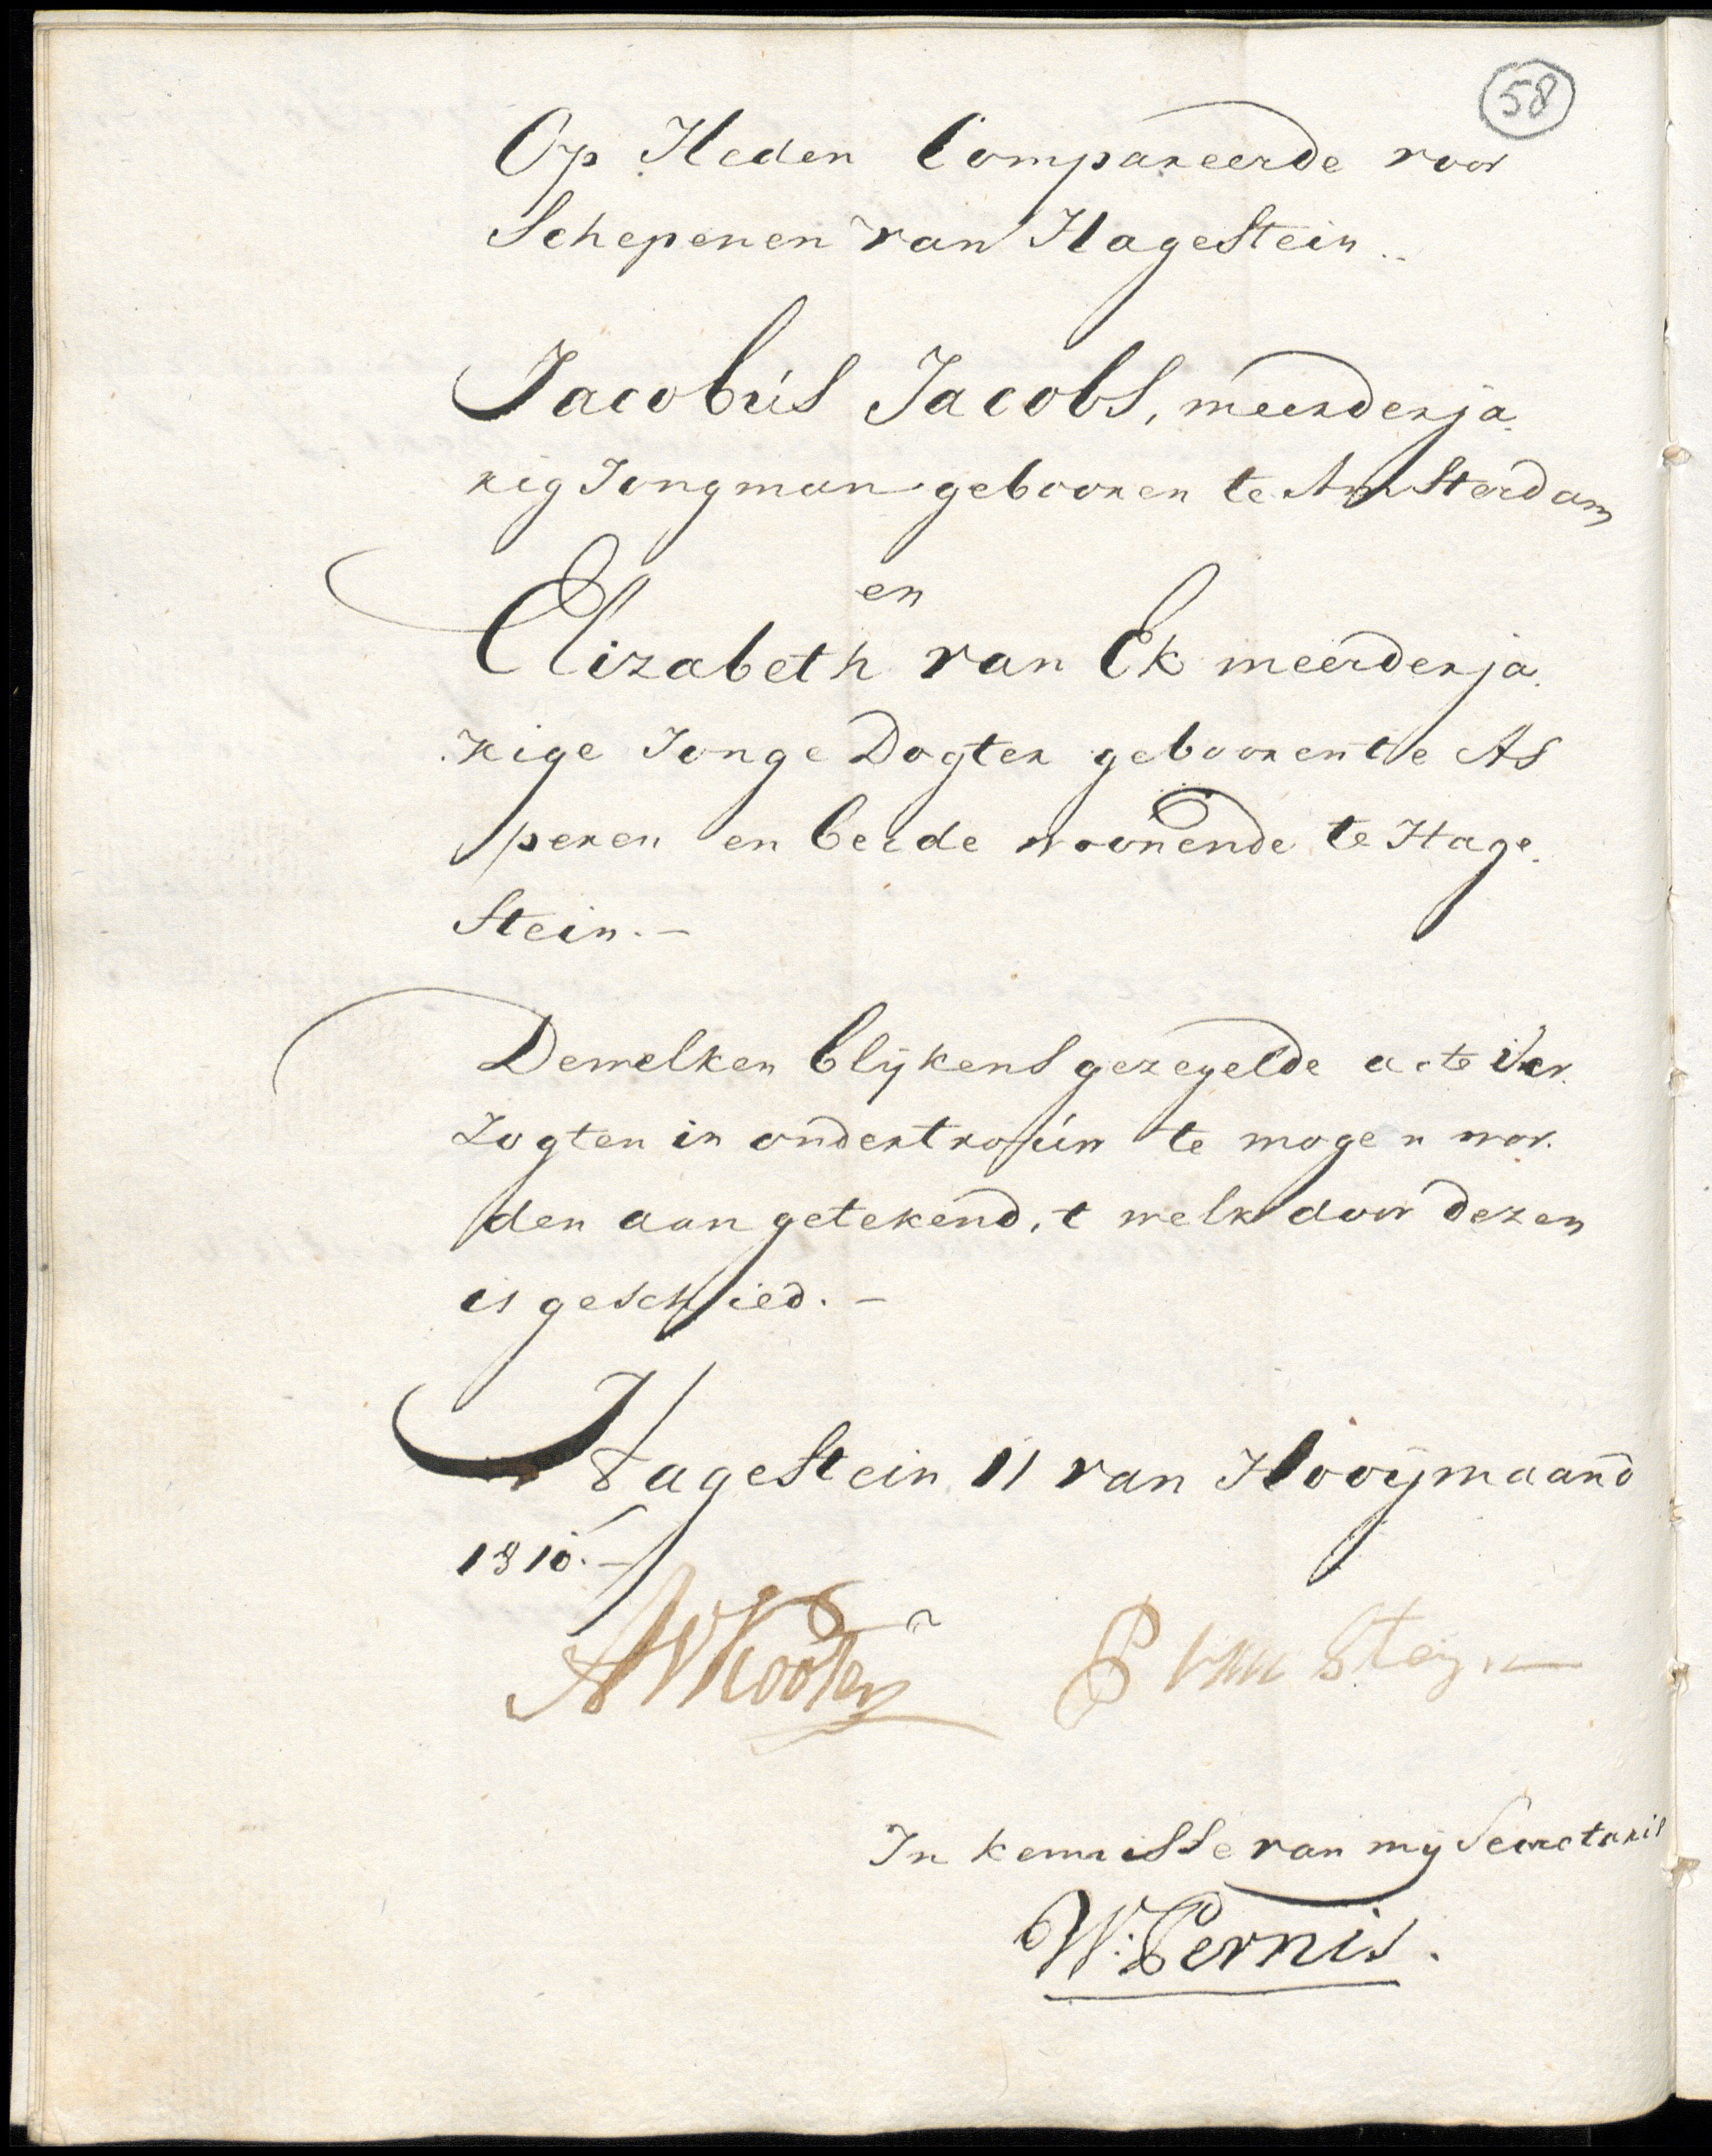 58
Op Heden Compareerde voor
Schepenen van HageStein..
Jacobús JacobS, meerderja.
rig Jongman gebooren te AmSterdam
en
Elizabeth van Ek meerderja.
rige Jonge Dogter geboorente AS
peren en beide woonende te Hage.
Stein.-
Dewelken blijkenS gezegelde acte Ver.
zogten in ondertroúw te mogen wor.
den aangetekend, t welk door dezen
is geschied.-
HageStein 11 van Hooijmaand
1810.-
AVKooten P van Steyn
In kennisse van mij Secretaris
W: Pernis.